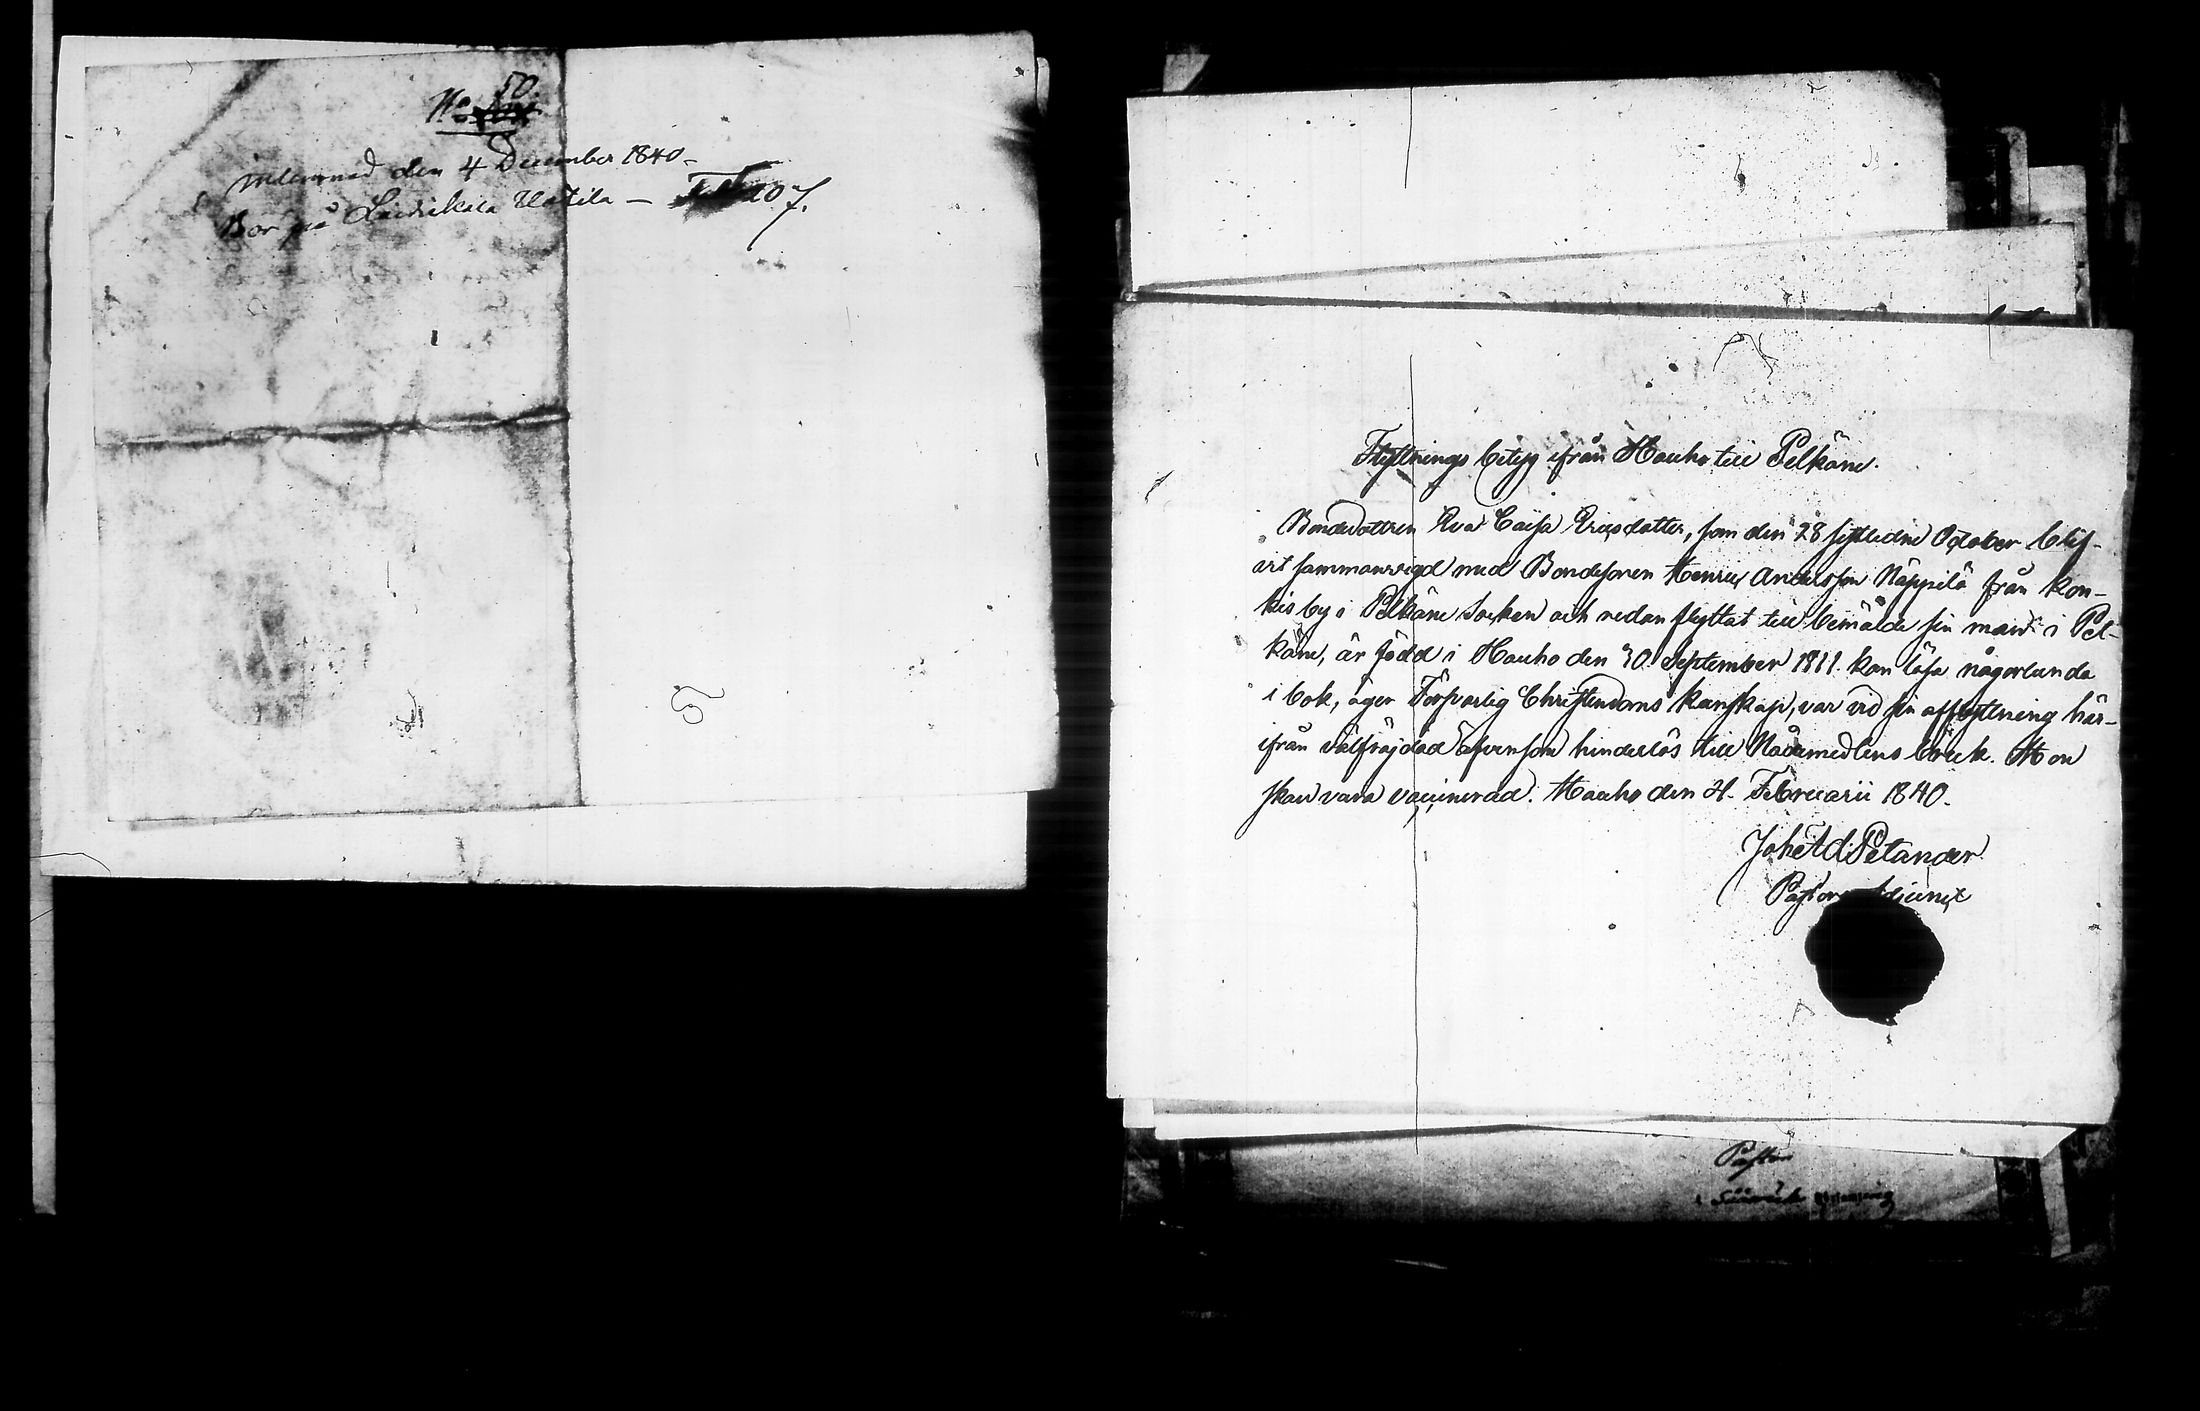 No 50
inlemnad den 4 December 1840 -
Bor på Laitikala Uotila — 107.
Flyttnings betyg ifrån Hauho till Pelkäne.
Bondedottren Eva Caisa Ericsdotter, som den 28 sistledne October blif-
vit sammanvigd med Bondesonen Henric Andersson Näppilä från Kon-
kis by i Pelkäne Socken och redan flyttat till bemälde sin man i Pel-
käne, är född i Hauho den 30 September 1811. kan läsa någorlunda
i bok, äger Försvarlig Christendoms kunskap, var vid sin afflyttning här-
ifrån välfräjdad äfvensom hinderlös till Nådemedlens bruk. Hon
skall vara vaccinerad. Hauho den 21. Februarii 1840.
Joh: Ad: Petander
Pastors Adjunct
Pastor